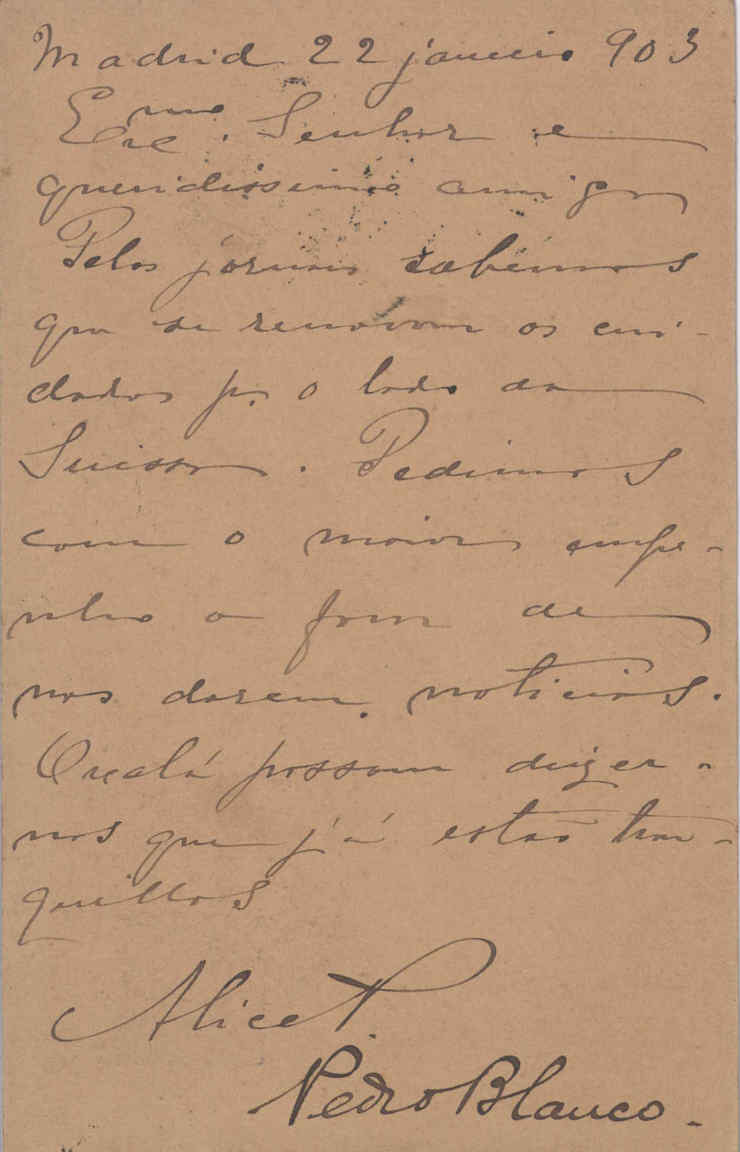 Madrid 22 janeiro 903
Exc.mo Senhor e
queridissimo amigo
Pelos jornaes sabemos
que se renovam os cui-
dados p.r o lado da
Suissa. Pedimos
com o maior empe-
nho o favor de
nos darem noticias.
Oxalá possam dizer-
nos que já estão tran-
quillos
Alice T.
Pedro Blanco.